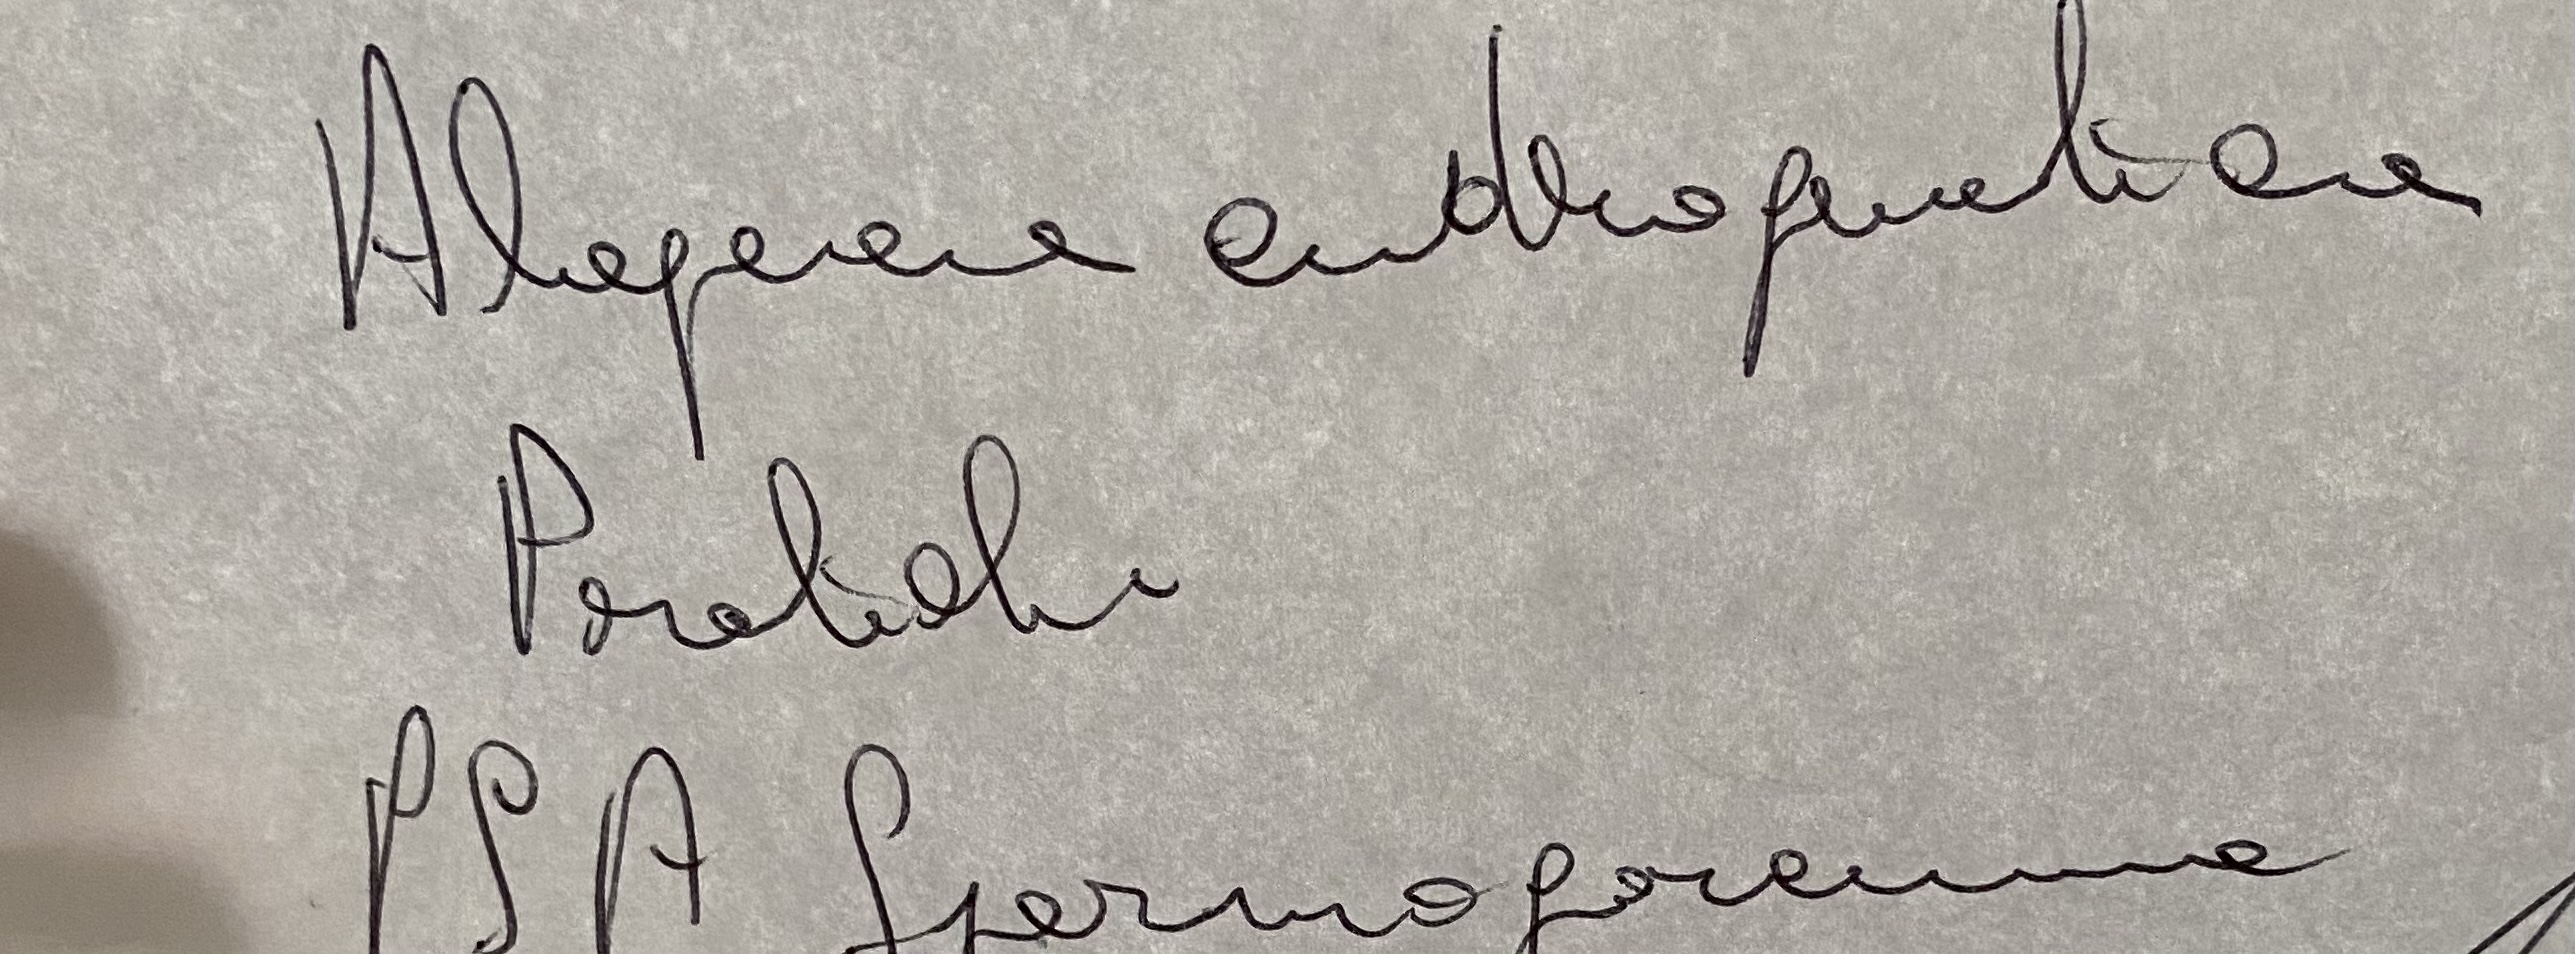 Alopecia androgenetica
Pratichi
PSA Spermogramma